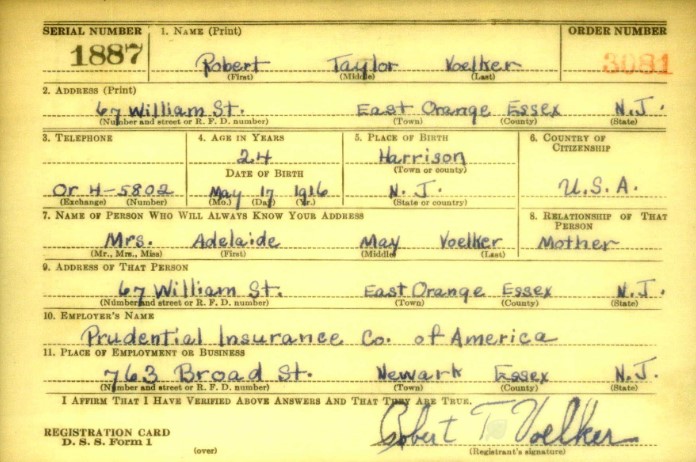 SERIAL NUMBER 1. NAME (Print) ORDER NUMBER
1887 Robert Taylor Voelker 3081
(First) (Middle) (Last)
2. ADDRESS (Print)
67 William St. East Orange Essex N.J.
(Number and street or R. F. D. number) (Town) (County) (State)
3. TELEPHONE 4. AGE IN YEARS 5. PLACE OF BIRTH 6. COUNTRY OF CITIZENSHIP
24 Harrison
DATE OF BIRTH (Town or county)
Or 4-5802 May 17 1916 N. J. U.S.A.
(Exchange) (Number) (Mo.) (Day) (Yr.) (State or country)
7. NAME OF PERSON WHO WILL ALWAYS KNOW YOUR ADDRESS 8. RELATIONSHIP OF THAT PERSON
Mrs. Adelaide May Voelker Mother
(Mr., Mrs., Miss) (First) (Middle) (Last)
9. ADDRESS OF THAT PERSON
67 William St. East Orange Essex N.J.
(Number and street or R. F. D. number) (Town) (County) (State)
10. EMPLOYER'S NAME
Prudential Insurance Co. of America
11. PLACE OF EMPLOYMENT OR BUSINESS
763 Broad St. Newark Essex N.J.
(Number and street or R. F. D. number) (Town) (County) (State)
I AFFIRM THAT I HAVE VERIFIED ABOVE ANSWERS AND THAT THEY ARE TRUE.
REGISTRATION CARD Robert T. Voelker
D. S. S. Form 1 (over) (Registrant's signature)